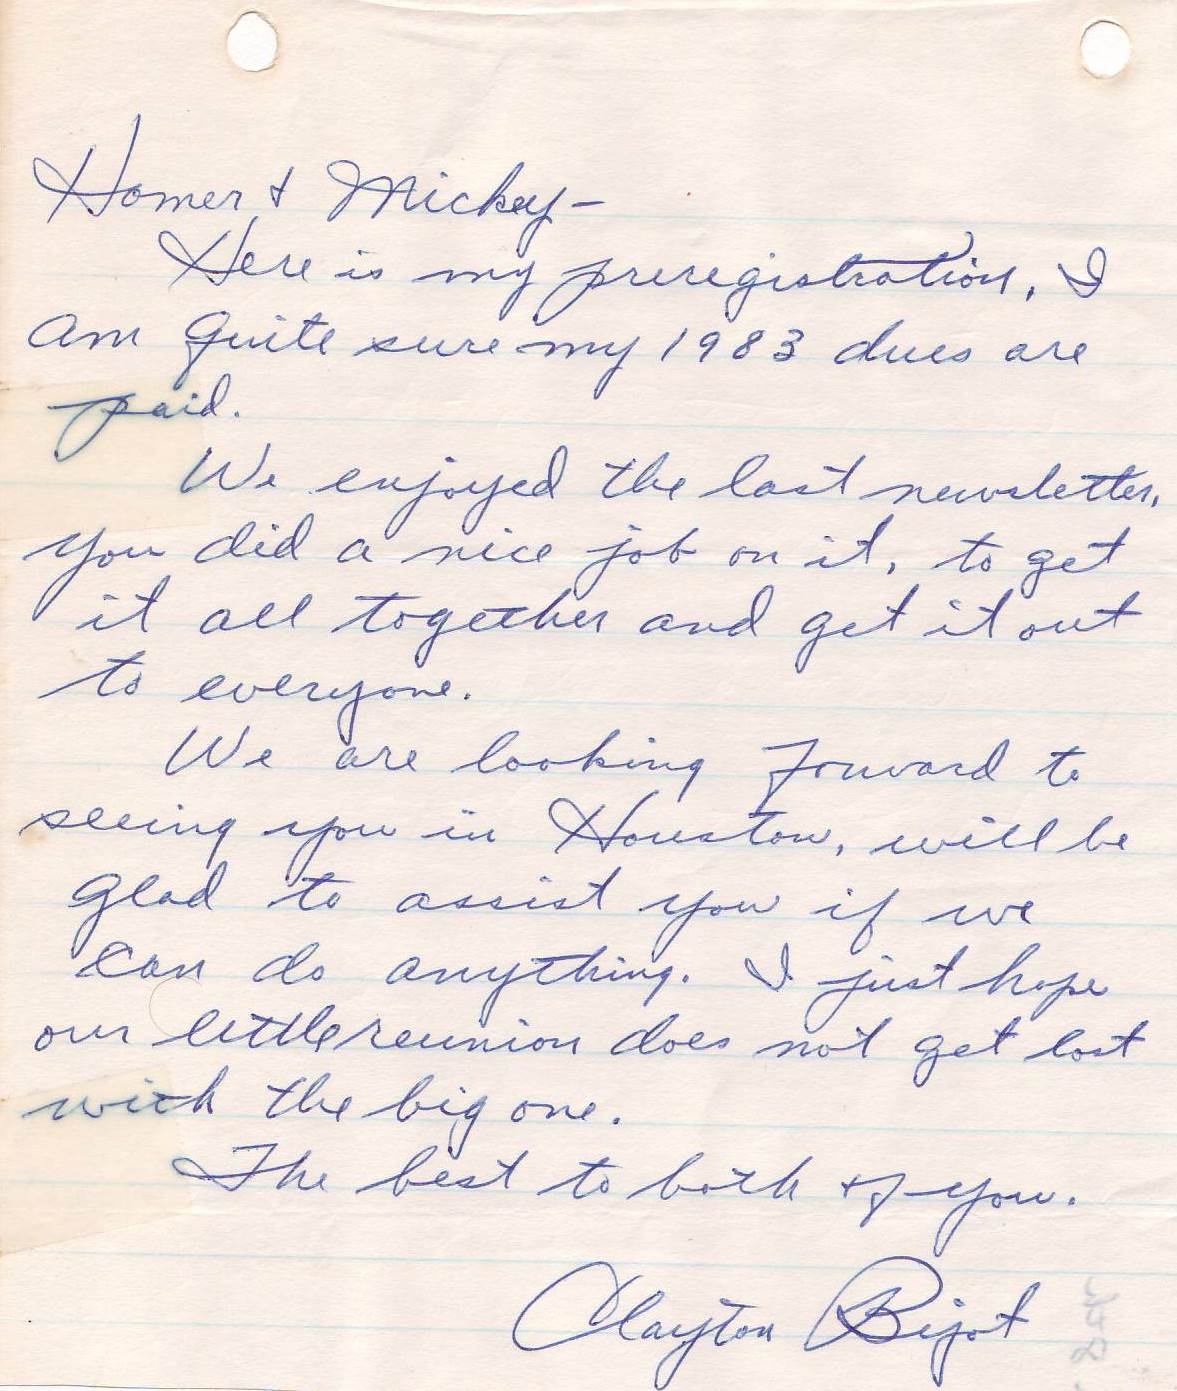 Homer & Mickey –
Here is my preregistration, I
am quite sure my 1983 dues are
paid.
We enjoyed the last newsletter,
you did a nice job on it, to get
it all together and get it out
to everyone.
We are looking forward to
seeing you in Houston, will be
glad to assist you if we
can do anything. I just hope
our little reunion does not get lost
with the big one.
The best to both of you.
Clayton Bijot